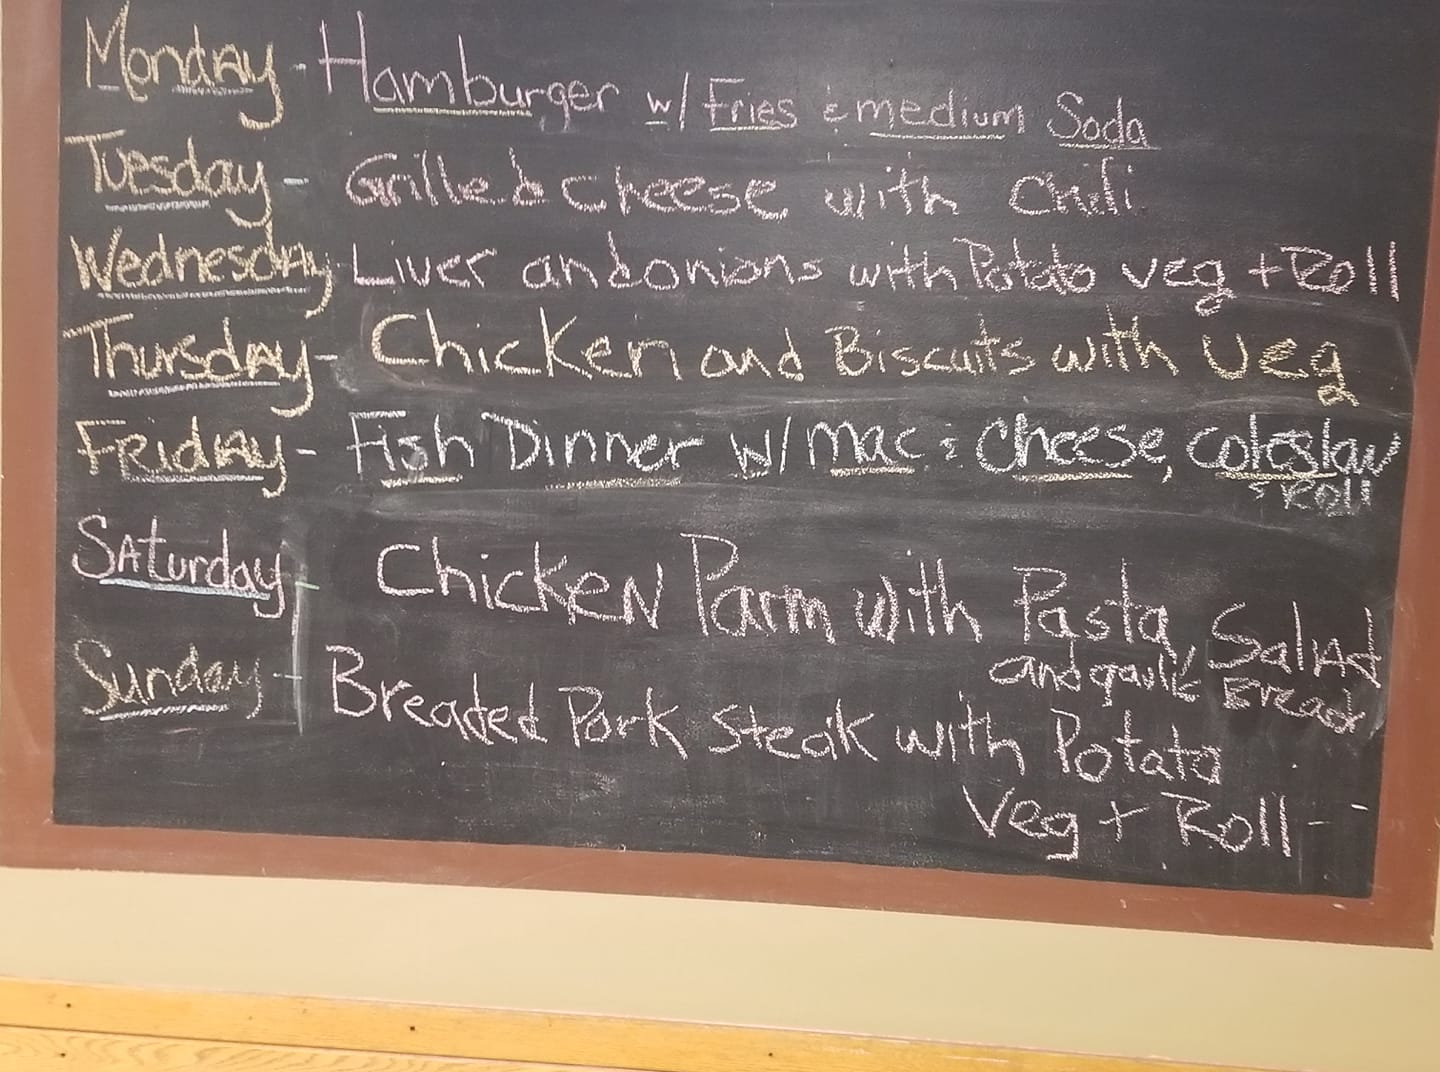 Monday - Hamburger w/ Fries & medium Soda
Tuesday - Grilled cheese with Chili
Wednesday - Liver and onions with Potato veg + Roll
Thursday - Chicken and Biscuits with veg
Friday - Fish Dinner w/ mac & cheese, coleslaw
& Roll
Saturday - Chicken Parm with Pasta, Salad
and garlic Bread
Sunday - Breaded Pork Steak with Potato
Veg + Roll -